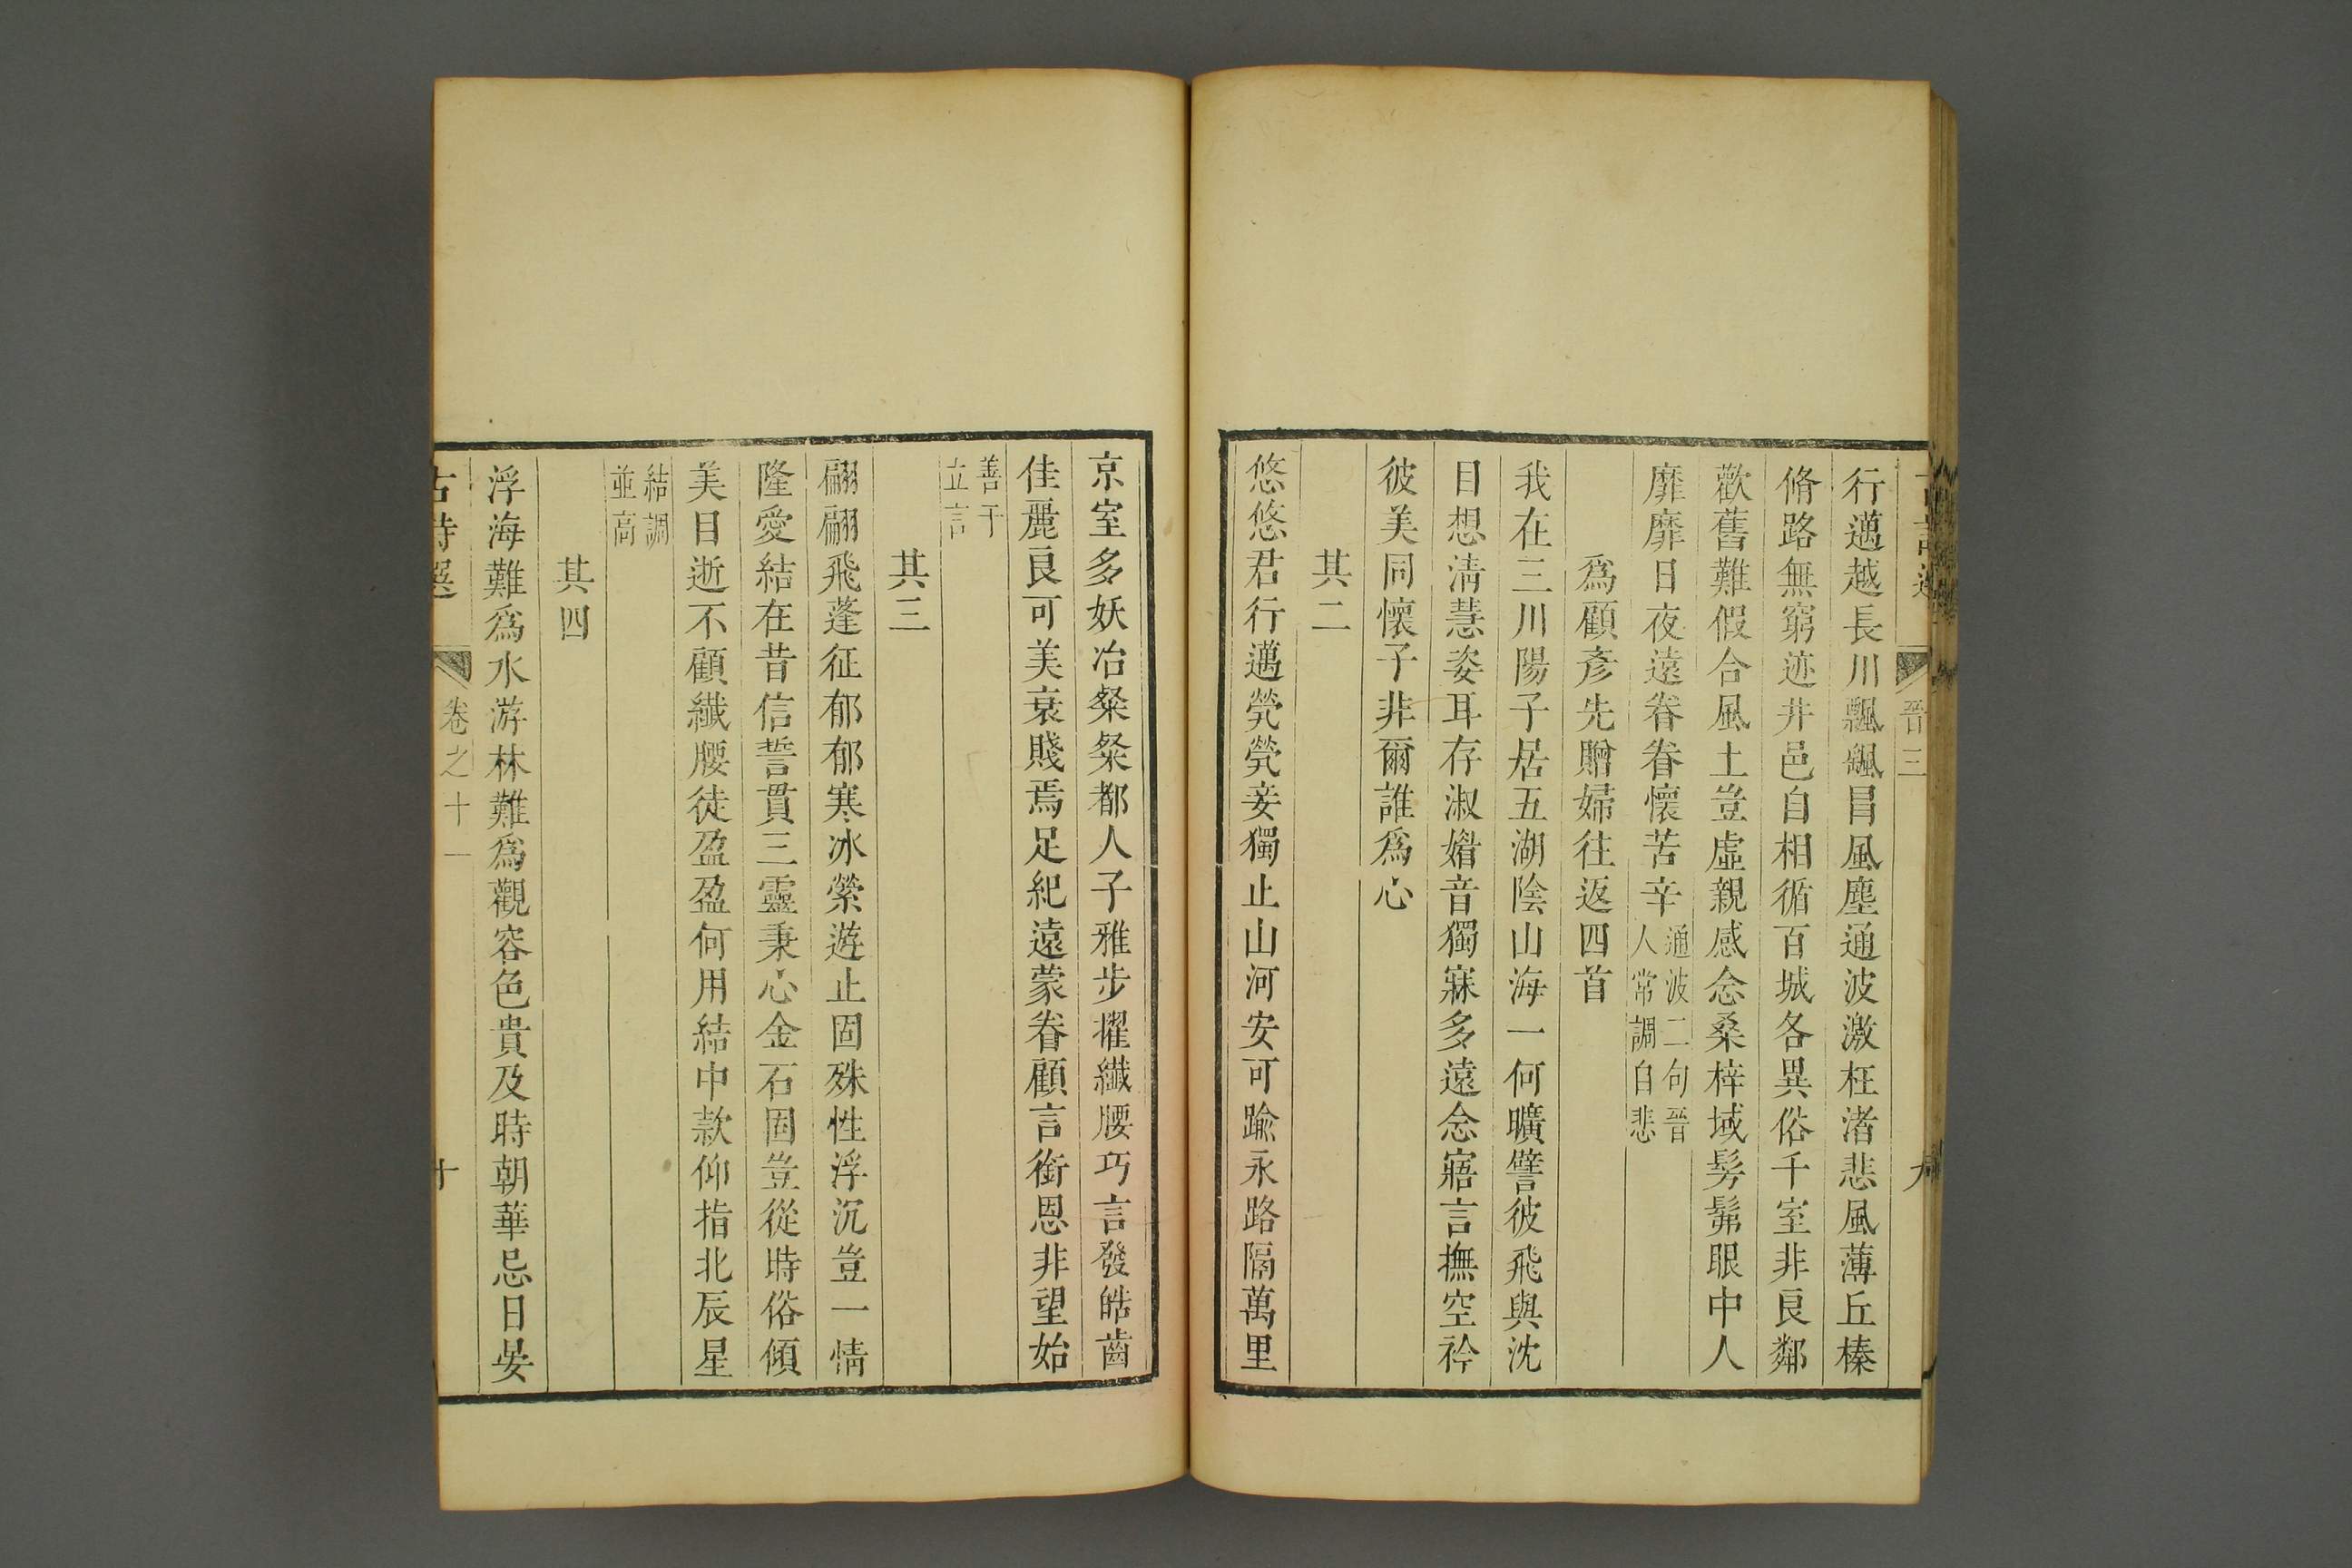 晉三
九
行邁越長川飄颻冒風塵通波激枉渚悲風薄丘榛
脩路無窮迹井邑自相循百城各異俗千室非良鄰
歡舊難假合風土豈虛親感念桑梓域髣髴眼中人
靡靡日夜遠眷眷懷苦辛通波二句晉
人常調自悲
爲顧彥先贈婦往返四首
我在三川陽子居五湖陰山海一何曠譬彼飛與沈
目想淸慧姿耳存淑媚音獨寐多遠念寤言撫空衿
彼美同懷子非爾誰爲心
其二
悠悠君行邁煢煢妾獨止山河安可踰永路隔萬里
京室多妖冶粲粲都人子雅步擢纖腰巧言發皓齒
佳麗良可美衰賤焉足紀遠蒙眷顧言銜恩非望始
善于
立言
其三
翩翩飛蓬征郁郁寒冰縈遊止固殊性浮沉豈一情
隆愛結在昔信誓貫三靈秉心金石固豈從時俗傾
美目逝不顧纖腰徒盈盈何用結中款仰指北辰星
結調
並高
其四
浮海難爲水游林難爲觀容色貴及時朝華忌日晏
古詩選
卷之十一
十